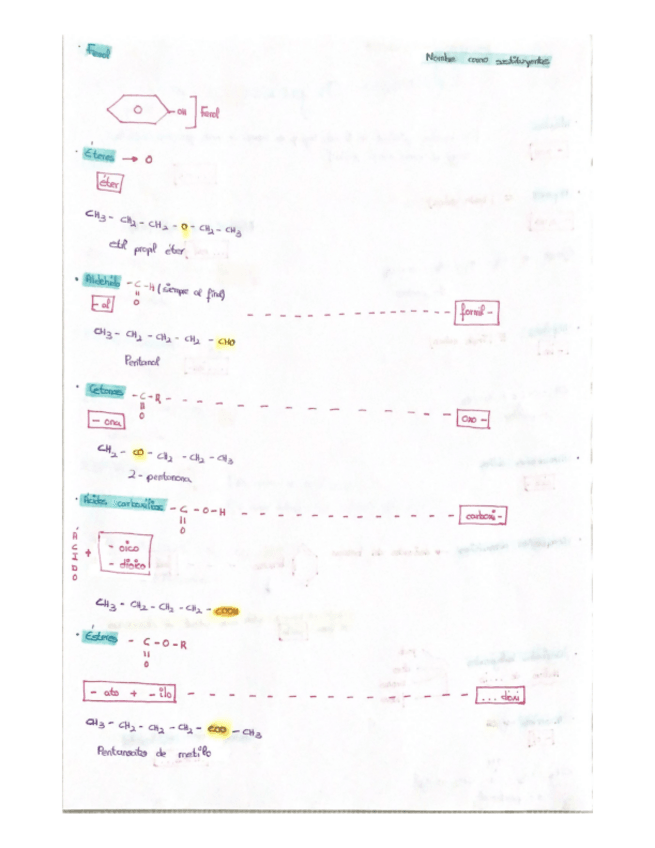 · Fenol
Nombre como sustituyentes
- OH ] Fenol
· Éteres → O
éter
CH3 - CH2 - CH2 - O - CH2 - CH3
etil propil éter
· Aldehído - C - H (siempre al final)
O
- al
formil -
CH3 - CH2 - CH2 - CH2 - CHO
Pentanal
· Cetonas - C - R
O
- ona
oxo -
CH2 - CO - CH2 - CH2 - CH3
2 - pentanona
· Ácidos carboxílicos - C - O - H
O
carboxi -
ÁCIDO + - oico
- dioico
CH3 - CH2 - CH2 - CH2 - COOH
· Ésteres - C - O - R
O
- ato + - ilo
CH3 - CH2 - CH2 - CH2 - COO - CH3
Pentanoato de metilo